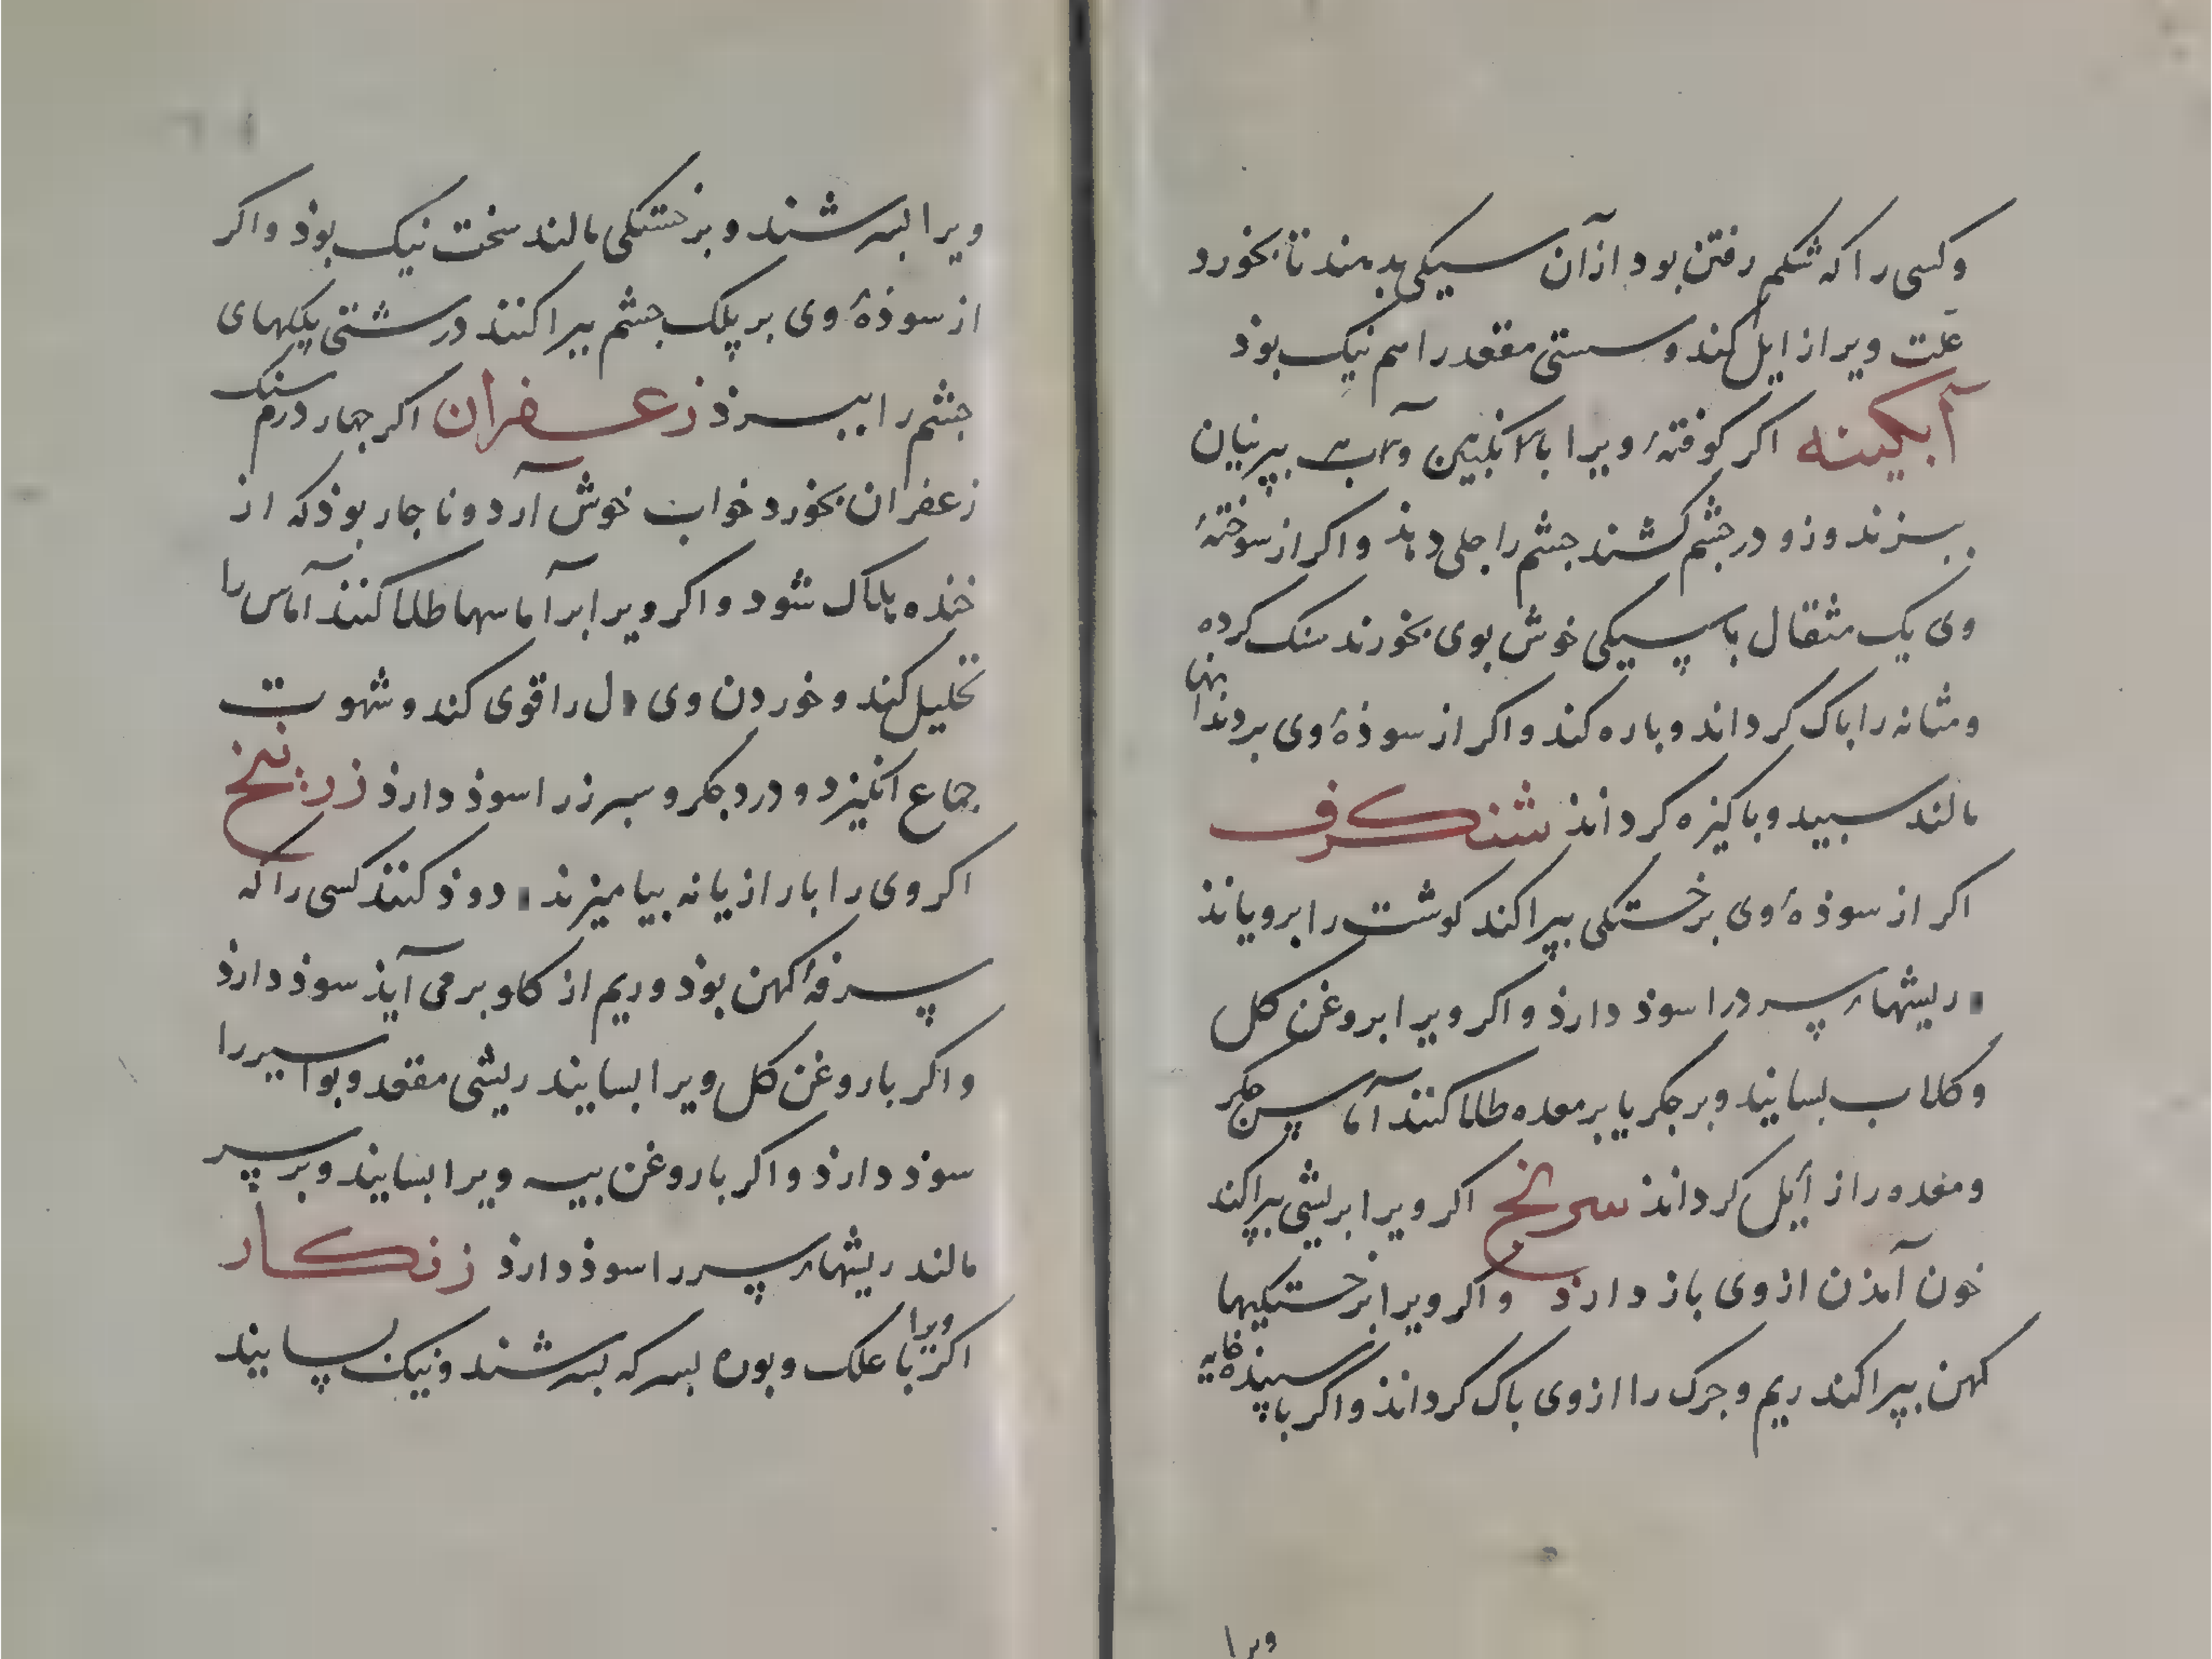 وکسی را که شکم رفتن بود از آن سیکی بدهند تا بخورد
علت ویرا زایل کند و سستی مقعد را هم نیک بوذ
آبکینه اکر کوفتهٔ ویرا با انکبین و آب بپرنیان
ببیزند وزو در جشم کشند جشم را جلی دهذ واکر از سوختهٔ
وی یک مثقال با سیکی خوش بوی بخورند سنک کرده
ومثانه را باک کرداند و باره کند واکر از سوذهٔ وی بر دندانها
مالند سبید و باکیزه کرداند شنکرف
اکر از سوذهٔ وی بر خستکی بپراکند کوشت را برویاند
ریشهاء سر درا سوذ دارذ واکر ویرا بروغن کل
وکلاب بسایند وبر جکر یا بر معده طلا کنند آماس جکر
ومعده را زایل کرداند سرنج اکر ویرا بریشی بپراکند
خون آمذن ازوی باز دارذ واکر ویرا بر خستکیها
کهن بپراکند ریم وجرک را ازوی باک کرداند واکر با سپیذهٔ خایه
ویرا
ویرا بسرشند و بر خستکی مالند سخت نیک بوذ واکر
از سوذهٔ وی بر پلک جشم بپراکنند درشتی پلکهای
جشم را ببرذ زعفران اکر جهار درم سنک
زعفران بخورد خواب خوش آرد و ناجار بوذ که از
خنده هلاک شود واکر ویرا بر آماسها طلا کنند آماس را
تحلیل کند وخوردن وی دل را قوی کند وشهوت
جماع انکیزد و درد جکر و سبرز را سوذ دارذ زرنیخ
اکر وی را با رازیانه بیامیزند دوذ کنند کسی را که
سرفهٔ کهن بوذ وریم از کلو برمی آیذ سوذ دارذ
واکر با روغن کل ویرا بسایند ریشی مقعد و بواسیر را
سوذ دارذ واکر با روغن بیه ویرا بسایند وبر سر
مالند ریشهاء سر را سوذ دارذ زنکار
اکر ویرا با علک و بوره بسرکه بسرشند ونیک بسایند